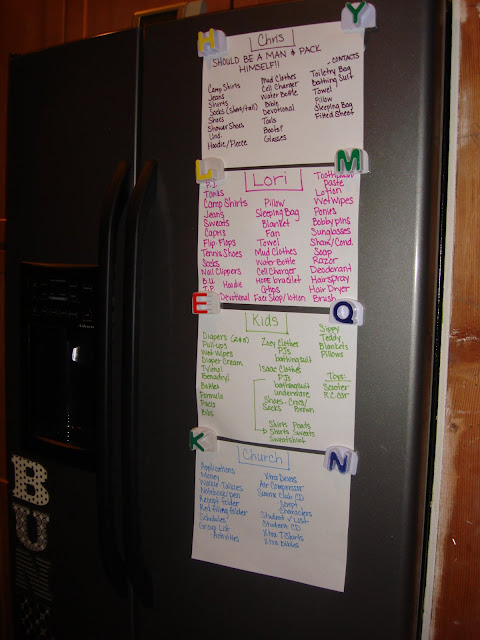 H
Y
Chris
SHOULD BE A MAN & PACK
HIMSELF!!
Camp Shirts
Jeans
Shorts
Socks (short/tall)
Shoes
Shower Shoes
Und.
Hoodie/Fleece
Mud Clothes
Cell Charger
Water Bottle
Bible
Devotional
Tools
Boots?
Glasses
- CONTACTS
Toiletry Bag
Bathing Suit
Towel
Pillow
Sleeping Bag
Fitted Sheet
L
M
Lori
P.J.
Tanks
Camp Shirts
Jeans
Sweats
Capris
Flip-Flops
Tennis Shoes
Socks
Nail Clippers
B.U. Hoodie
T.P.
Devotional
Pillow
Sleeping Bag
Blanket
Fan
Towel
Mud Clothes
Water Bottle
Cell Charger
HOPE bracelet
Qtips
Face Soap/lotion
Toothbrush
paste
Lotion
Wet Wipes
Ponies
Bobby pins
Sunglasses
Sham/Cond.
Soap
Razor
Deodorant
Hairspray
Hair Dryer
Brush
E
O
Kids
Diapers
Pull-ups
Wet Wipes
Diaper Cream
Tylenol
Benadryl
Bottles
Formula
Pacis
Bibs
Zoey Clothes
PJs
bathingsuit
Isaac Clothes
PJs
bathingsuit
underwear
Shoes - Crocs/
Socks Brown
Shirts Pants
Shorts Sweats
Sweatshirt
Sippy
Teddy
Blankets
Pillows
Toys:
Scooter
R.C. Car
K
N
Church
Applications
Money
Walkie Talkies
Notebook/pen
Receipt folder
Red filing folder
Schedules
Group List
Activities
Xtra Devos
Air Compressor
CD
Script
Characters
Student List
Student CD
Xtra T Shirts
Xtra Bibles
B
U